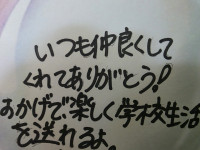 いつも仲良くして
くれてありがとう!
おかげで、楽しく学校生活
を送れるよ。